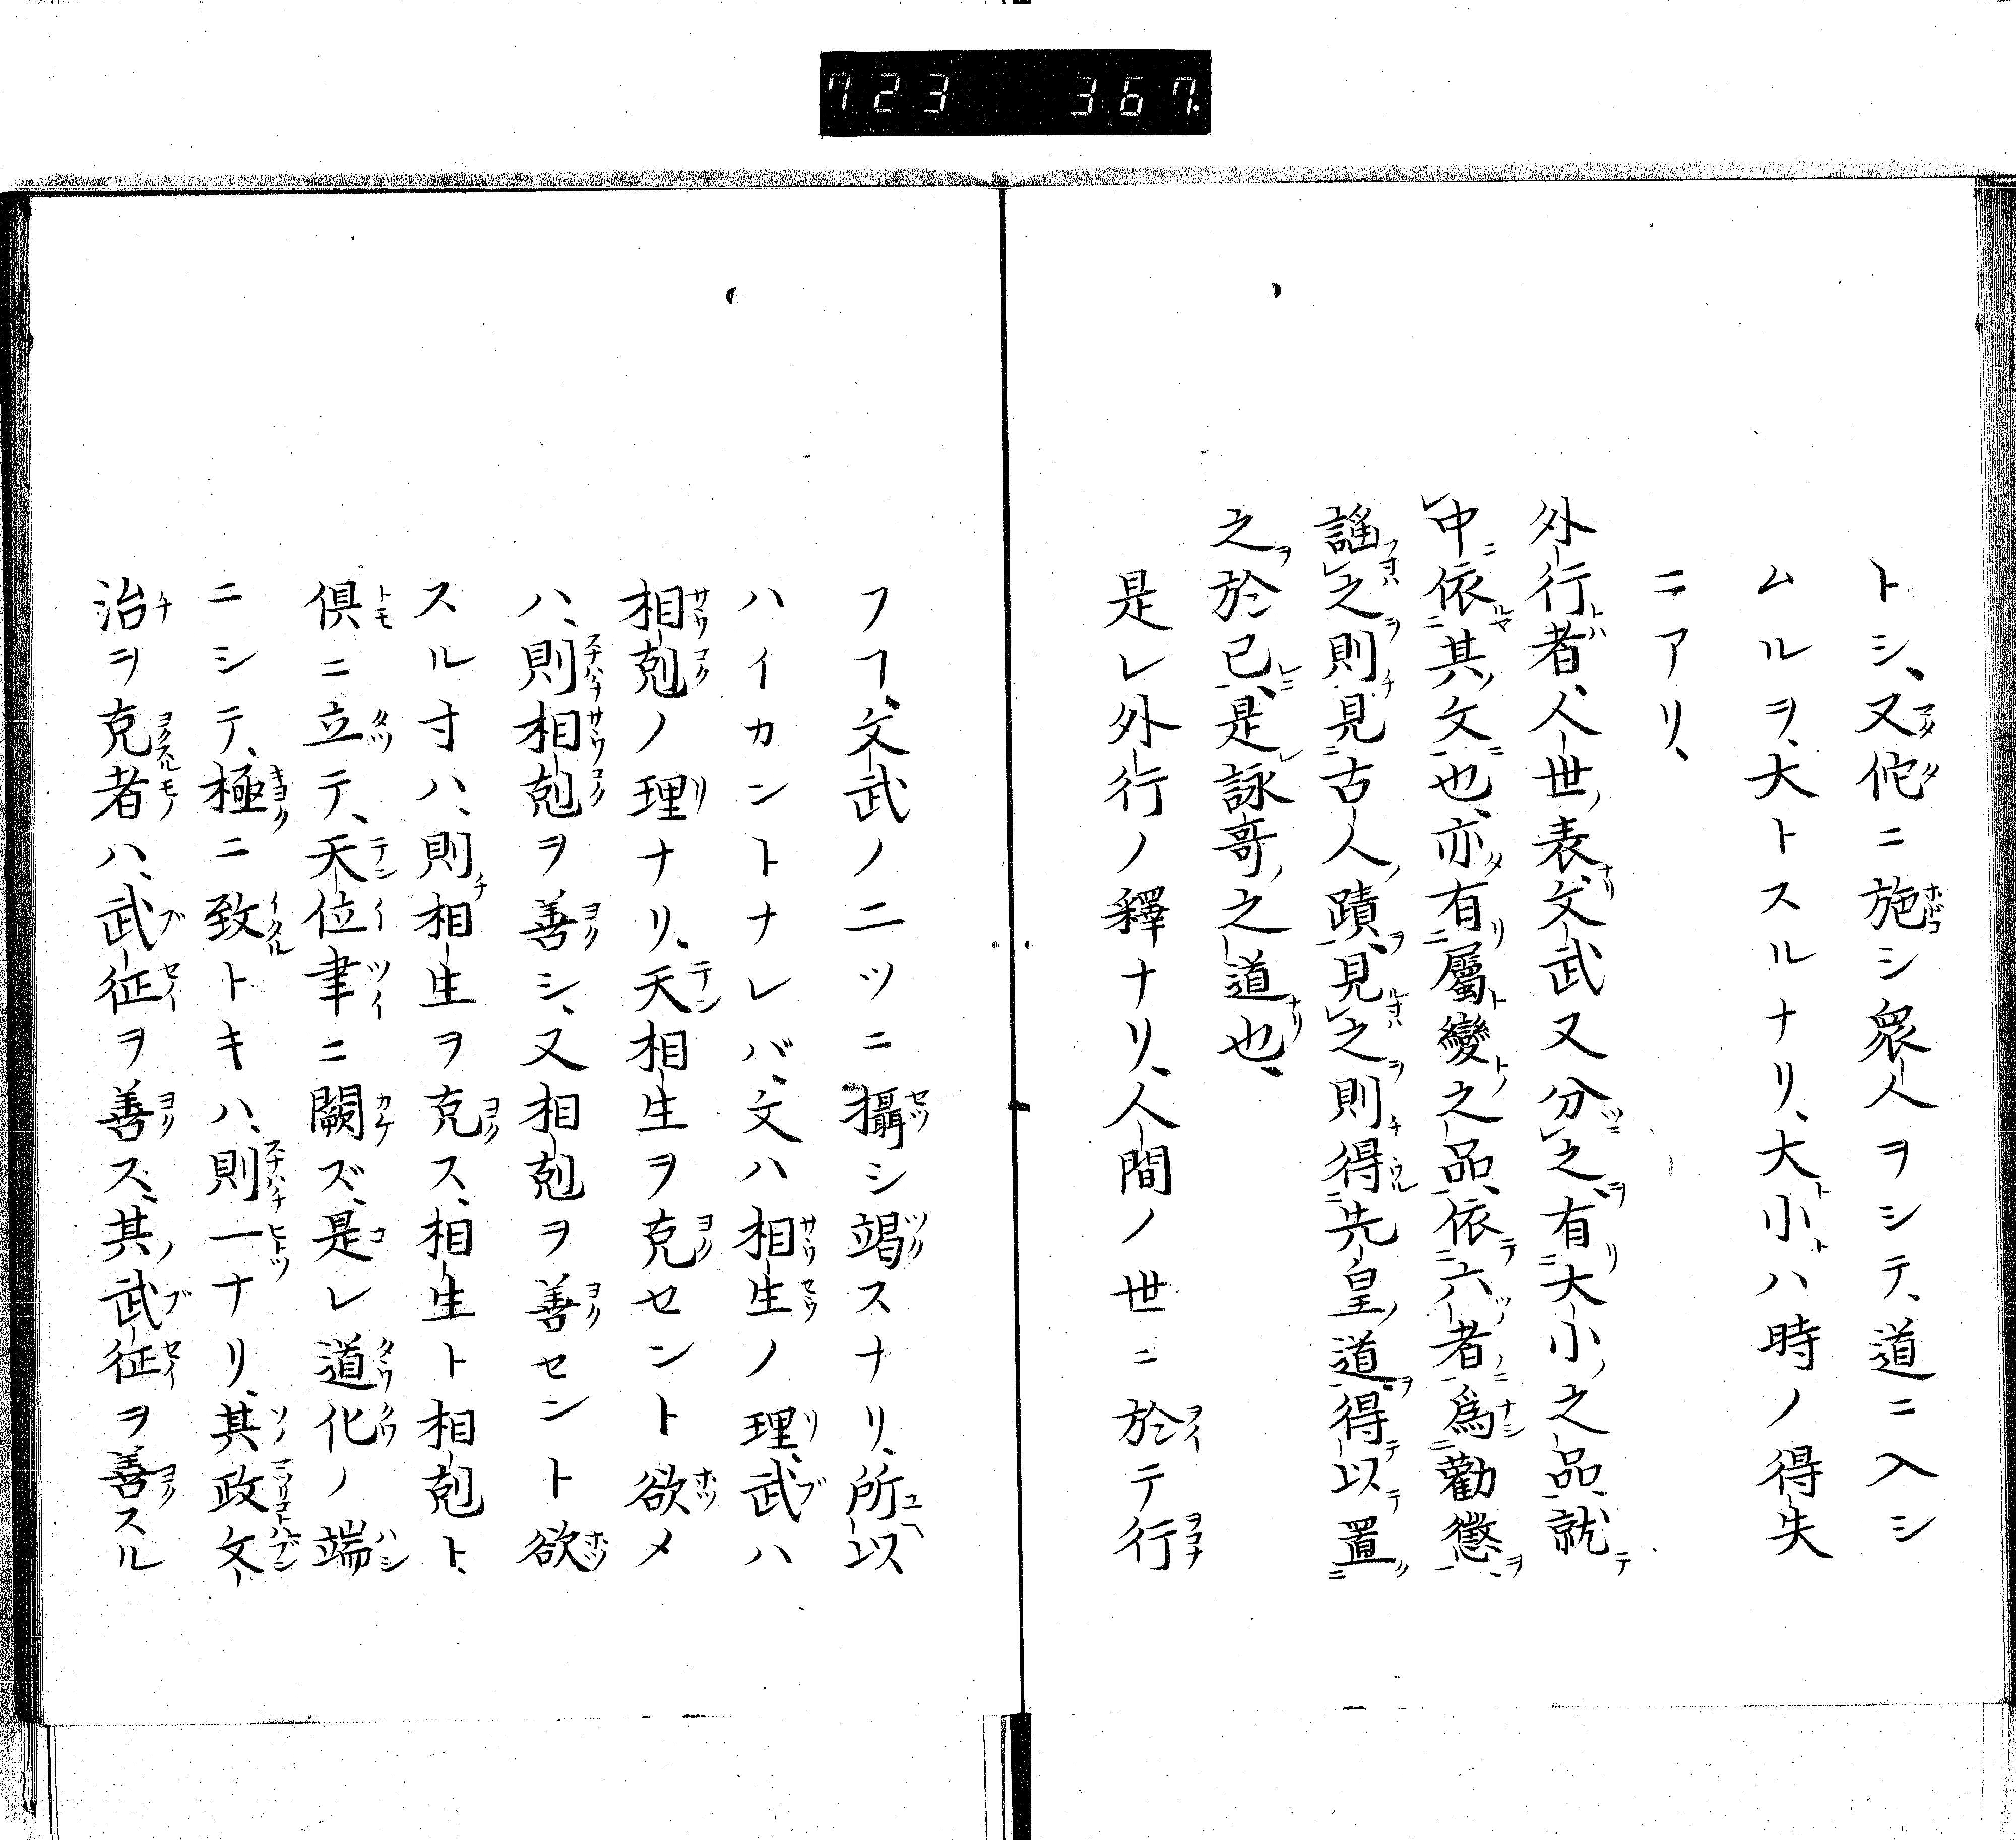 723 367.
トシ、又佗ニ施シ衆人ヲシテ、道ニ入シ
ムルヲ、大トスルナリ、大小ハ時ノ得失
ニアリ、
外行者、人世ノ表ナリ、文武又分之、有大小ノ之品、就
中依其ノ文也、亦有屬變之品、依六ツノ者ニ爲勸懲ヲ、
謡之則見古人ノ蹟ヲ、見之則得先皇ノ道ヲ、得以置
之於已、是詠哥ノ之道也、
是レ外行ノ釋ナリ、人間ノ世ニ於テ行
フヿ、文武ノ二ツニ攝シ竭スナリ、所以
ハイカントナレバ、文ハ相生ノ理、武ハ
相剋ノ理ナリ、天相生ヲ克セント欲メ
ハ、則相剋ヲ善シ、又相剋ヲ善セント欲
スル寸ハ、則相生ヲ克ス、相生ト相剋ト、
倶ニ立テ、天位聿ニ闕ズ、是レ道化ノ端
ニシテ、極ニ致トキハ、則一ナリ、其政文
治ヲ克者ハ、武征ヲ善ス、其ノ武征ヲ善スル